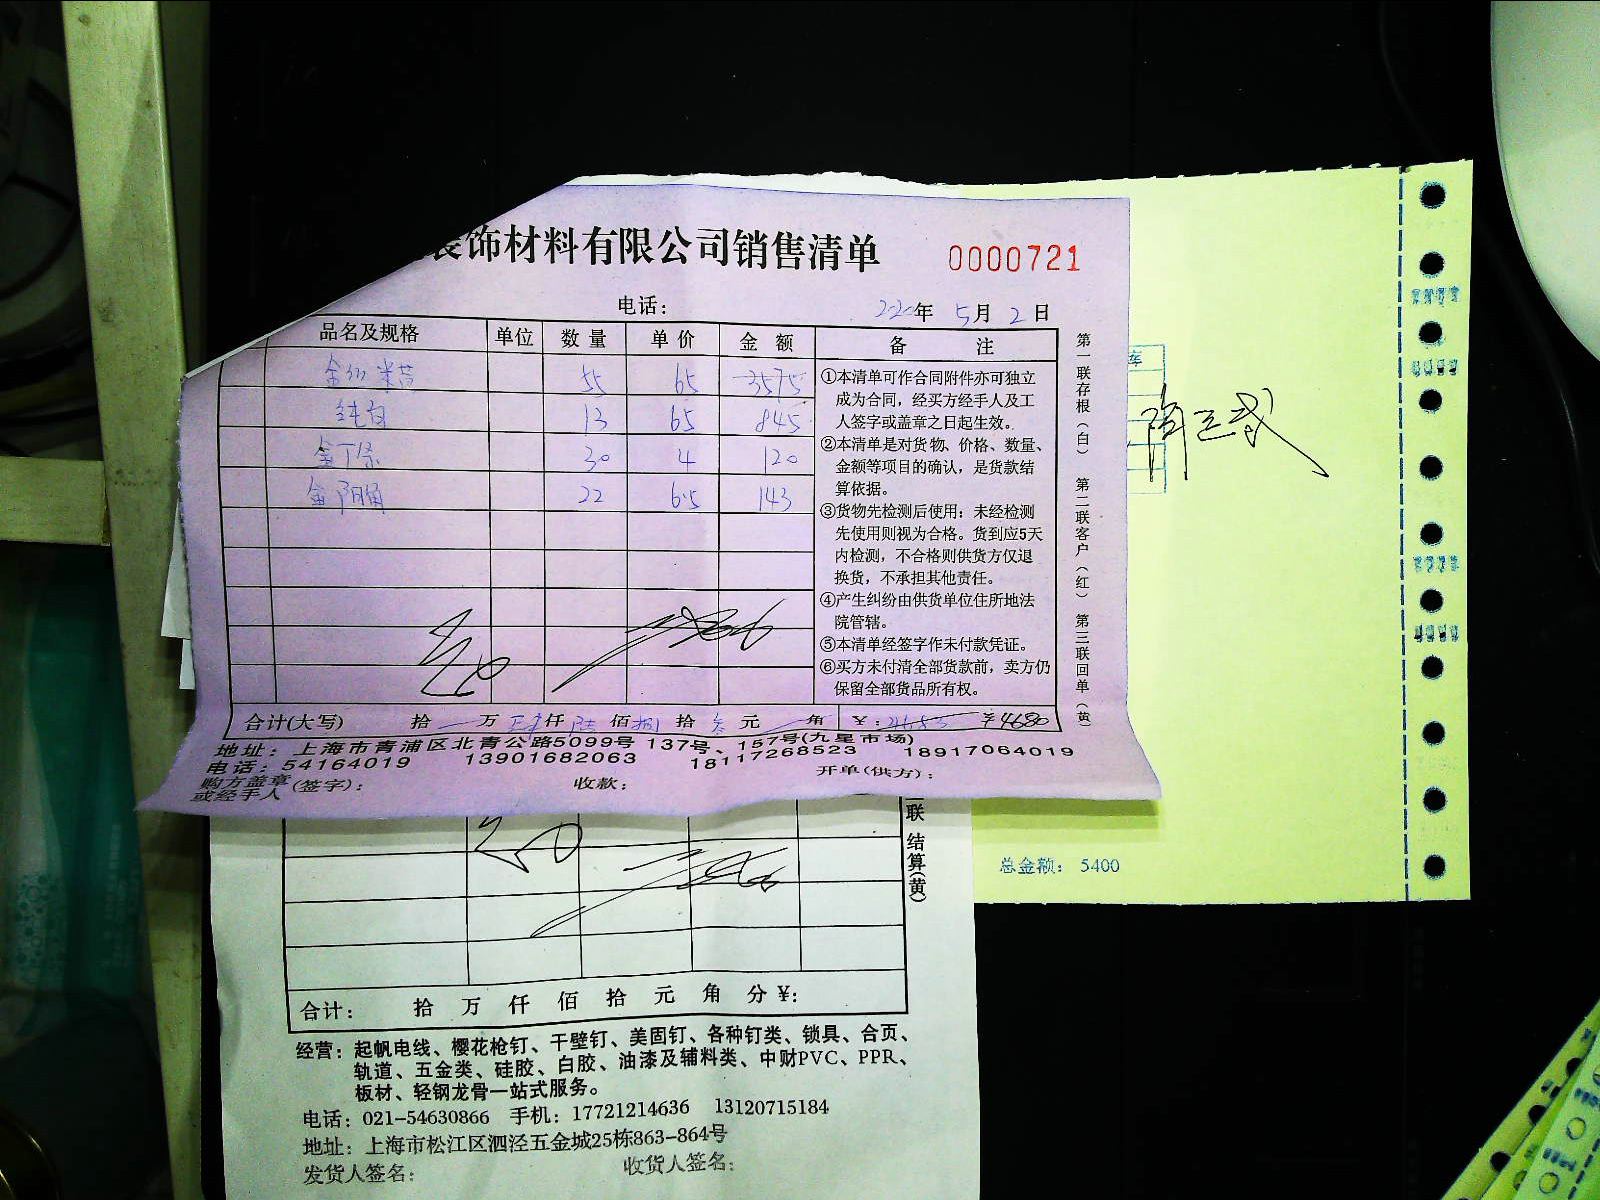 装饰材料有限公司销售清单 0000721
电话： 220年 5月 2日
品名及规格 单位 数量 单价 金额 备注
55 65 3575
纯白 13 65 845
30 4 120
金阳角 22 6.5 143
①本清单可作合同附件亦可独立
成为合同，经买方经手人及工
人签字或盖章之日起生效。
②本清单是对货物、价格、数量、
金额等项目的确认，是货款结
算依据。
③货物先检测后使用：未经检测
先使用则视为合格。货到应5天
内检测，不合格则供货方仅退
换货，不承担其他责任。
④产生纠纷由供货单位住所地法
院管辖。
⑤本清单经签字作未付款凭证。
⑥买方未付清全部货款前，卖方仍
保留全部货品所有权。
第一联存根（白） 第二联客户（红） 第三联回单（黄）
合计(大写) 拾 万 肆仟 陆佰 捌拾 叁元 角 ￥：4683 ￥4680
地址：上海市青浦区北青公路5099号 137号、157号(九星市场)
电话：54164019 13901682063 18117268523 18917064019
购方盖章(签字)： 收款： 开单(供方)：
或经手人
库
总金额： 5400
联 结算(黄)
合计： 拾 万 仟 佰 拾 元 角 分 ￥：
经营：起帆电线、樱花枪钉、干壁钉、美固钉、各种钉类、锁具、合页、
轨道、五金类、硅胶、白胶、油漆及辅料类、中财PVC、PPR、
板材、轻钢龙骨一站式服务。
电话：021-54630866 手机：17721214636 13120715184
地址：上海市松江区泗泾五金城25栋863-864号
发货人签名： 收货人签名：